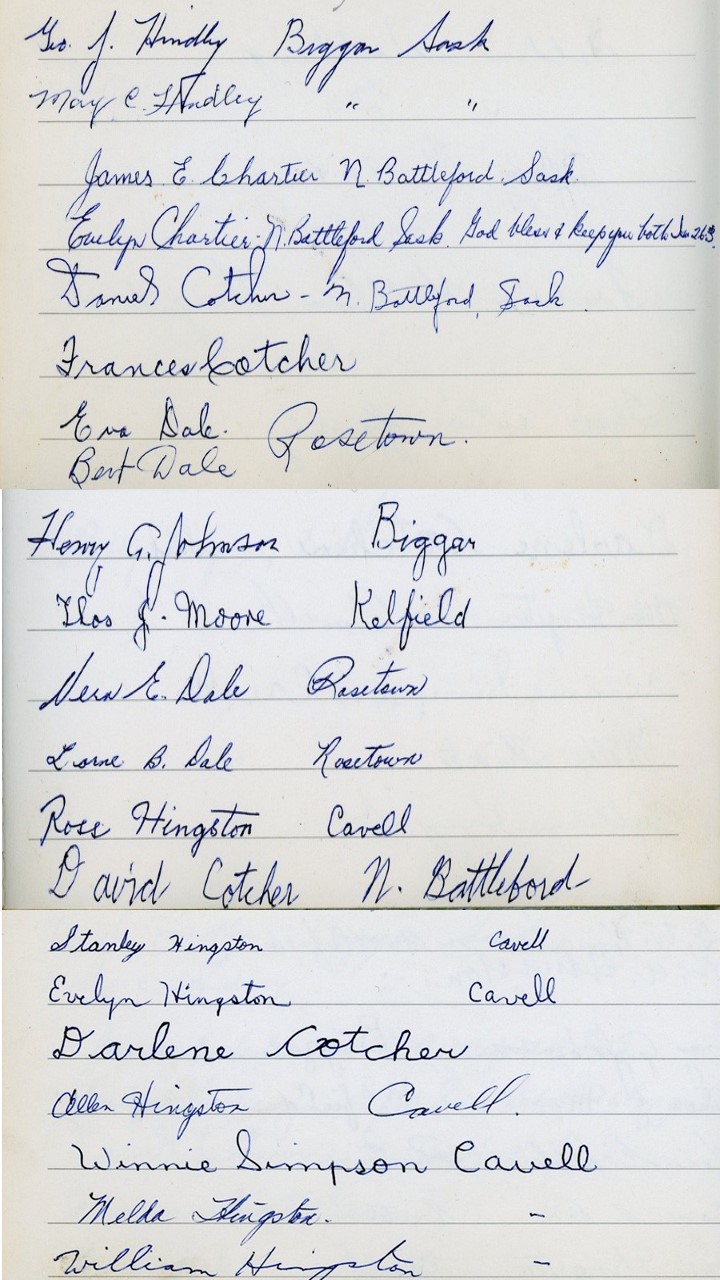 Geo. J. Hindley Biggar Sask
May C. Hindley " "
James E. Chartier N. Battleford. Sask.
Evelyn Chartier - N. Battleford Sask. God bless & keep you both Jan 26
Daniel Cotcher - N. Battleford, Sask.
Frances Cotcher
Eva Dale. Rosetown.
Bert Dale
Henry G. Johnson Biggar
Thos J. Moore Kelfield
Vera E. Dale Rosetown
Lorne B. Dale Rosetown
Ross Hingston Cavell
David Cotcher N. Battleford
Stanley Hingston Cavell
Evelyn Hingston Cavell
Darlene Cotcher
Allen Hingston Cavell.
Winnie Simpson Cavell
Melda Hingston. -
William Hingston -